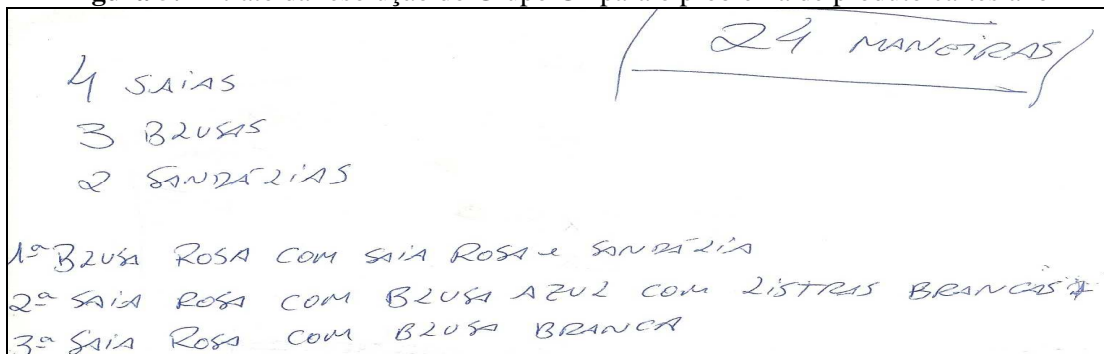 24 MANEIRAS
4 SAIAS
3 BLUSAS
2 SANDÁLIAS
1ª BLUSA ROSA COM SAIA ROSA e SANDÁLIA
2ª SAIA ROSA COM BLUSA AZUL COM LISTRAS BRANCAS
3ª SAIA ROSA COM BLUSA BRANCA